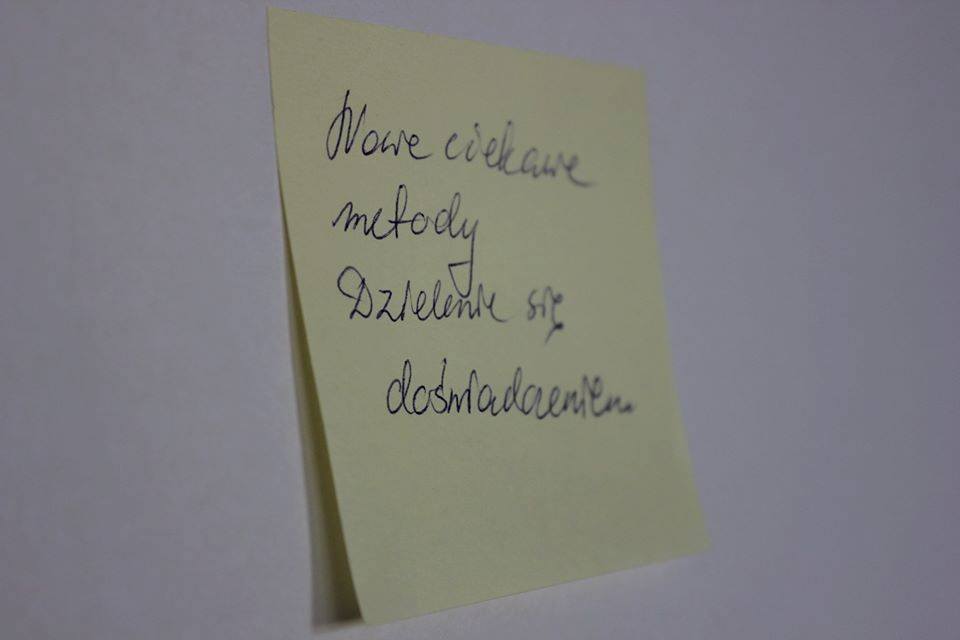 Nowe ciekawe
metody
Dzielenie się
doświadczeniem